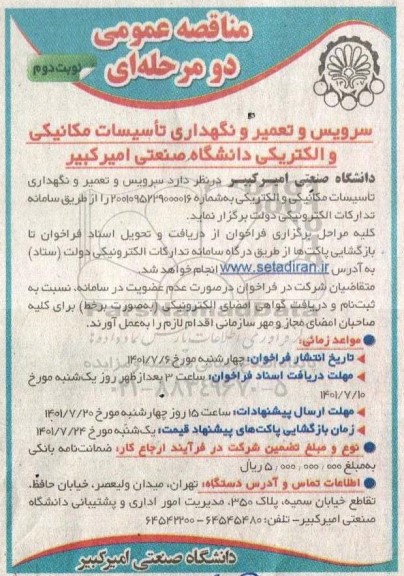 مناقصه عمومی
دو مرحله‌ای
نوبت دوم
سرویس و تعمیر و نگهداری تأسیسات مکانیکی
و الکتریکی دانشگاه صنعتی امیرکبیر
دانشگاه صنعتی امیرکبیر درنظر دارد سرویس و تعمیر و نگهداری
تأسیسات مکانیکی و الکتریکی به‌شماره ۲۰۰۱۰۹۵۲۲۹۰۰۰۰۱۶ را از طریق سامانه
تدارکات الکترونیکی دولت برگزار نماید.
کلیه مراحل برگزاری فراخوان از دریافت و تحویل اسناد فراخوان تا
بازگشایی پاکت‌ها از طریق درگاه سامانه تدارکات الکترونیکی دولت (ستاد)
به آدرس www.setadiran.ir انجام خواهد شد.
متقاضیان شرکت در فراخوان درصورت عدم عضویت در سامانه، نسبت به
ثبت‌نام و دریافت گواهی امضای الکترونیکی (به‌صورت برخط) برای کلیه
صاحبان امضای مجاز و مهر سازمانی اقدام لازم را به‌عمل آورند.
مواعد زمانی:
تاریخ انتشار فراخوان: چهارشنبه مورخ ۱۴۰۱/۷/۶
مهلت دریافت اسناد فراخوان: ساعت ۳ بعدازظهر روز یک‌شنبه مورخ
۱۴۰۱/۷/۱۰
مهلت ارسال پیشنهادات: ساعت ۱۵ روز چهارشنبه مورخ ۱۴۰۱/۷/۲۰
زمان بازگشایی پاکت‌های پیشنهاد قیمت: یک‌شنبه مورخ ۱۴۰۱/۷/۲۴
نوع و مبلغ تضمین شرکت در فرآیند ارجاع کار: ضمانت‌نامه بانکی
به‌مبلغ ۵,۰۰۰,۰۰۰,۰۰۰ ریال
اطلاعات تماس و آدرس دستگاه: تهران، میدان ولیعصر، خیابان حافظ،
تقاطع خیابان سمیه، پلاک ۳۵۰، مدیریت امور اداری و پشتیبانی دانشگاه
صنعتی امیرکبیر - تلفن: ۶۴۵۴۵۴۸۰ - ۶۴۵۴۲۲۰۰
دانشگاه صنعتی امیرکبیر